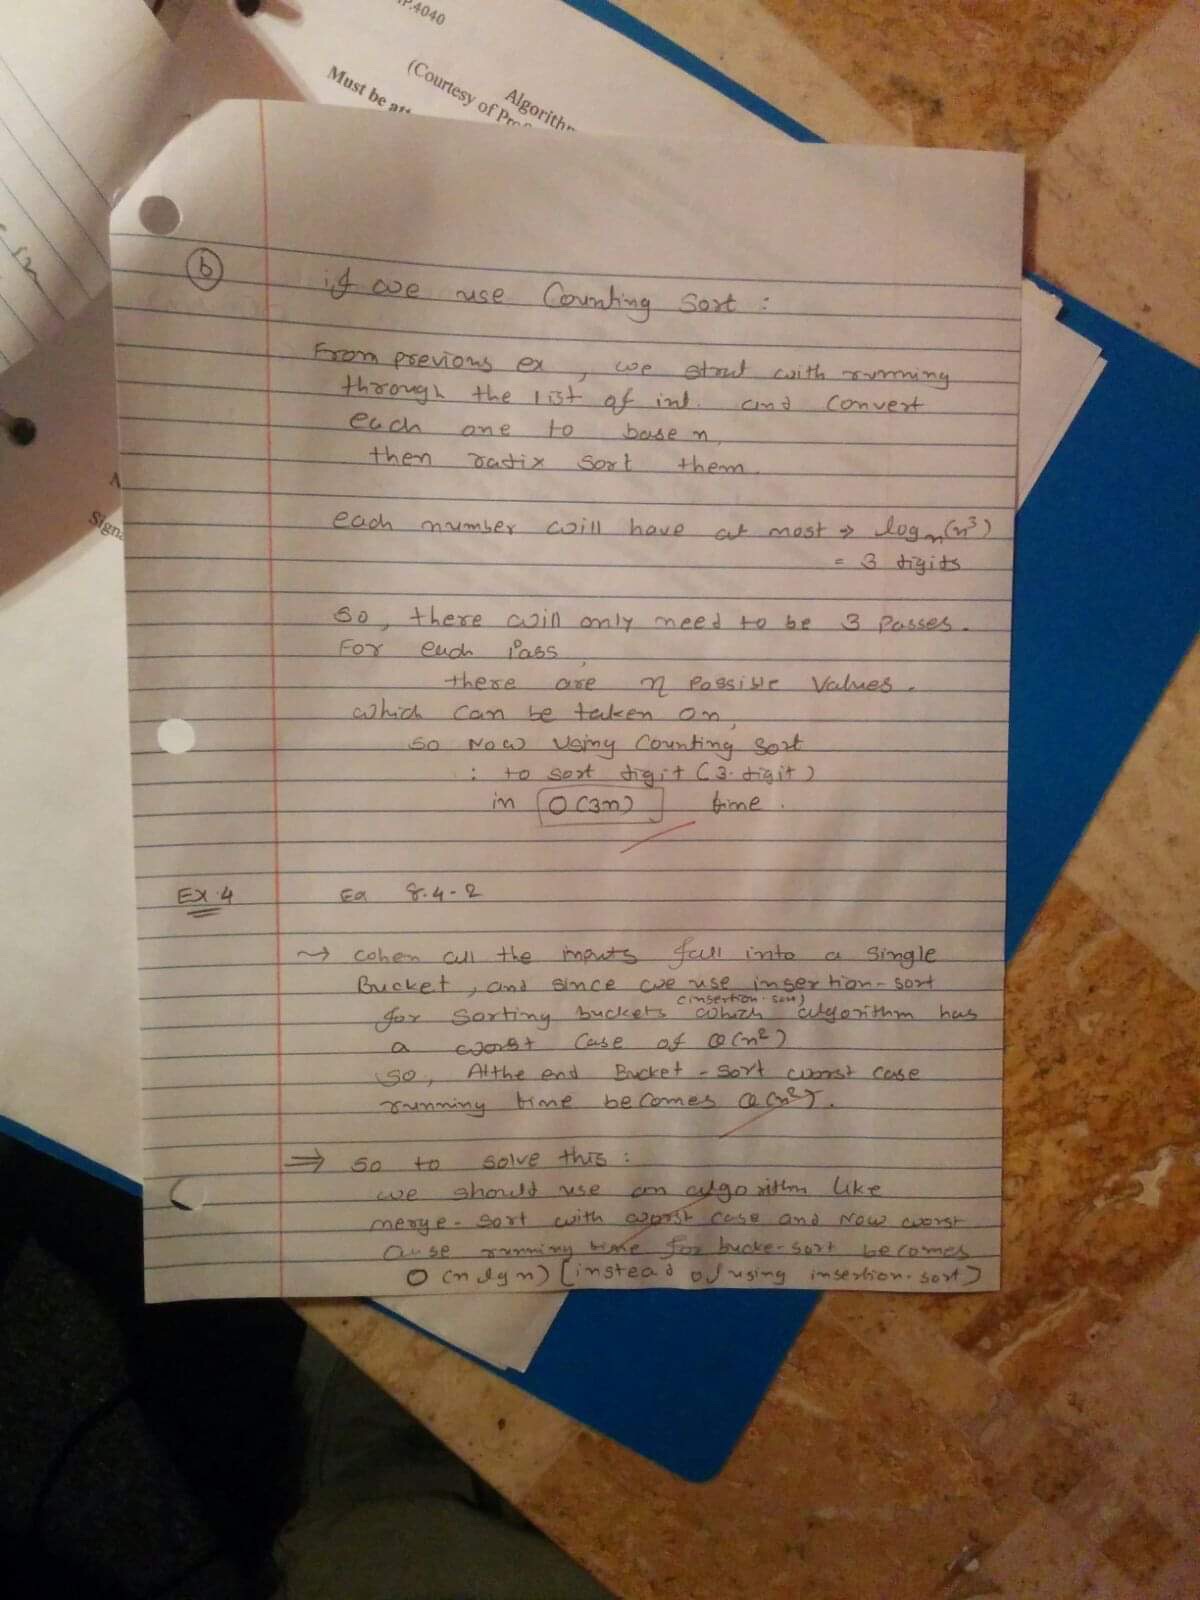 P.4040
Algorithm
(Courtesy of Pro
Must be att
Signa
b
if we use Counting Sort :
From previous ex , we strat with running
through the list of int. and convert
each one to base n,
then ratix sort them.
each number will have at most ⇒ logₙ(n³)
= 3 digits
So, there will only need to be 3 passes.
For each pass,
there are n possible values.
which can be taken on,
so Now using Counting Sort
: to sort digit (3-digit)
in O(3n) time.
Ex.4 Ex 8.4-2
→ when all the inputs fall into a single
Bucket, and since we use insertion-sort
(insertion-sort)
for sorting buckets which algorithm has
a worst case of Θ(n²)
so, At the end Bucket-sort worst case
running time becomes Θ(n²).
⇒ so to solve this :
we should use an algo rithm like
merge-sort with worst case and Now worst
case running time for bucke-sort becomes
O(n lg n) [instead of using insertion-sort]